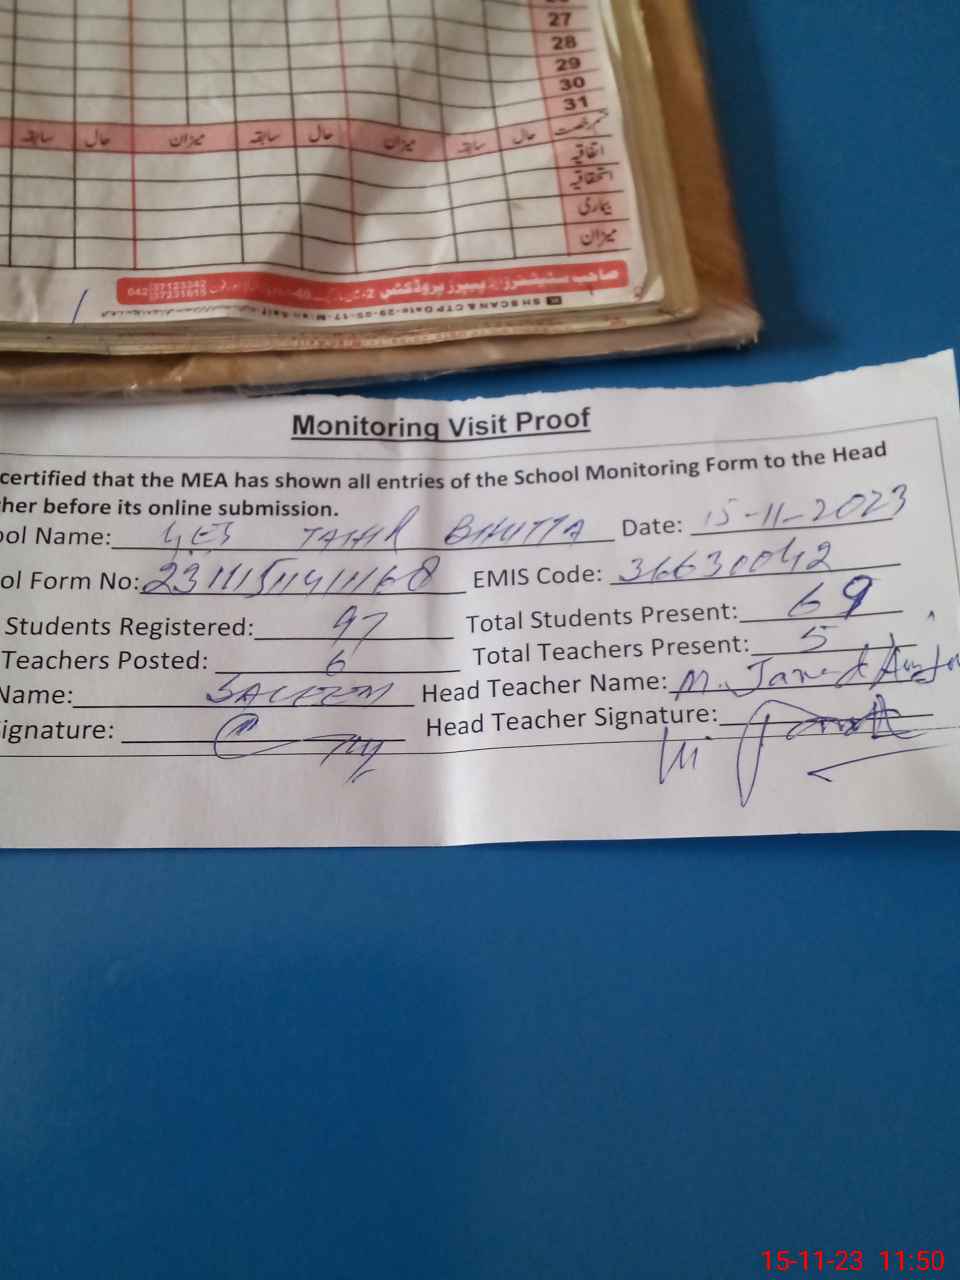 27
28
29
30
31
سابقہ حال میزان سابقہ حال میزان سابقہ حال
اتفاقیہ
استحقاقیہ
بیماری
میزان
042 37123342
37231615
Monitoring Visit Proof
certified that the MEA has shown all entries of the School Monitoring Form to the Head
her before its online submission.
ool Name: TAHIR BHUTTA Date: 15-11-2023
ol Form No: EMIS Code: 36630042
Students Registered: 97 Total Students Present: 69
Teachers Posted: 6 Total Teachers Present: 5
Name: SALEEM Head Teacher Name: M.
ignature: Head Teacher Signature:
15-11-23 11:50